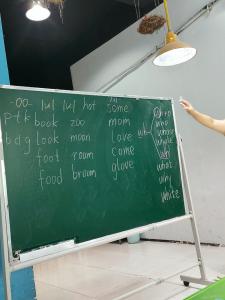 -oo- /u/ /u/ hot some
p t k book zoo mom
b d g look moon love
foot room come
food broom glove
wh-
who
whose
whole
what
why
write